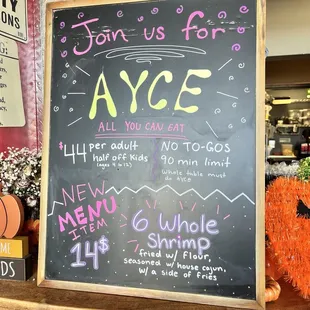 Join us for
AYCE
ALL YOU CAN EAT
$44 per adult
half off Kids
(ages 4 to 12)
NO TO-GOS
90 min limit
Whole table must
do AYCE
NEW
MENU
ITEM
14$
6 Whole
Shrimp
fried w/ flour,
seasoned w/ house cajun,
w/ a side of fries